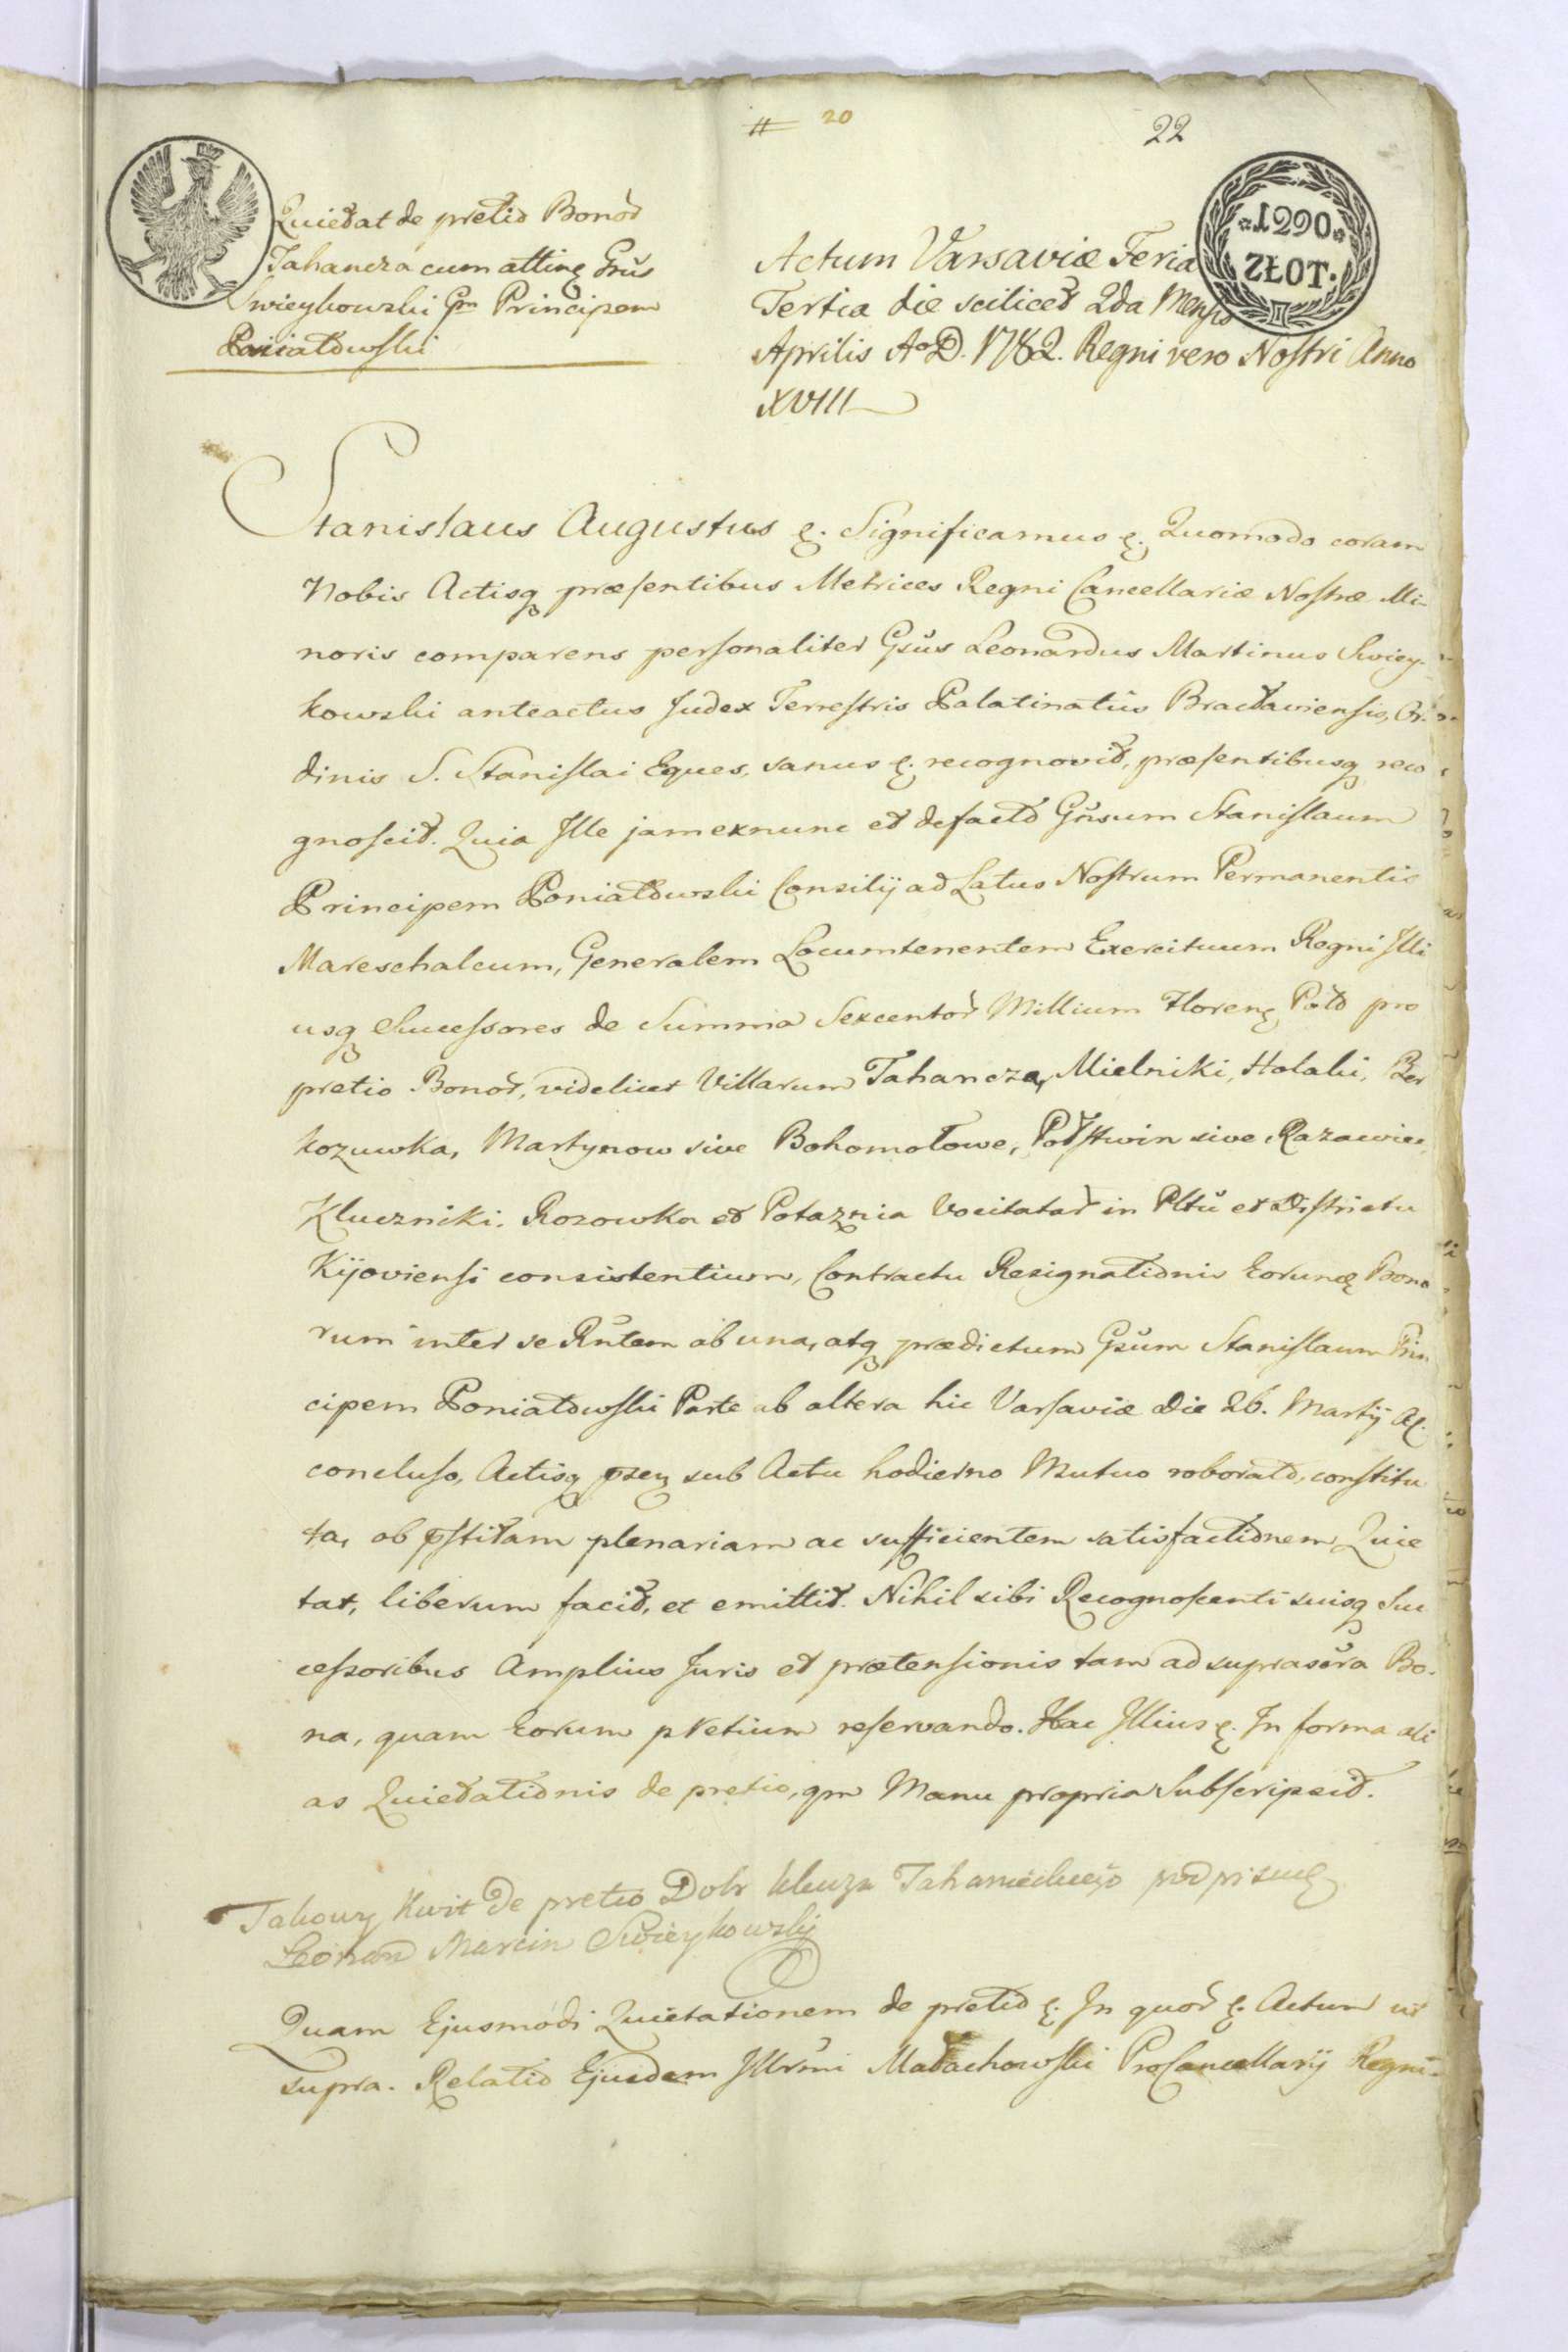 # 20
22
1290
ZŁOT.
Quietat de pretio Bonor
Tahancza cum atting Grūs
Swieykowski Gm Principem
Poniatowski
Actum Varsaviæ Feria
Tertia die scilicet 2da Mensis
Aprilis Ao D. 1782. Regni vero Nostri Anno
XVIII
Stanislaus Augustus &. Significamus &. Quomodo coram
Nobis Actisq præsentibus Metrices Regni Cancellariæ Nostræ Mi-
noris comparens personaliter Gsūs Leonardus Martinus Swiey-
kowski anteactus Judex Terrestris Palatinatūs Bracłaviensis, Or-
dinis S. Stanislai Eques, sanus &. recognovit, præsentibusq reco
gnoscit. Quia Ille jam exnunc et defacto Gūsum Stanislaum
Principem Poniatowski Consilij ad Latus Nostrum Permanentis
Mareschalcum, Generalem Locumtenentem Exercituum Regni Illi
usq Successores de Summa Sexcentor Millium Floren Pol pro
pretio Bonor, videlicet Villarum Tahancza, Mielniki, Holaki, Ber
kozuwka, Martynow sive Bohomołowe, Potstwin sive Razawiec,
Kluczniki, Rozowka et Potaznia Vocitatar in Pltū et Districtu
Kijoviensi consistentium, Contractu Resignationis Eorunq Bono
rum inter se Rūtem ab una, atq prædictum Gsūm Stanislaum Prin
cipem Poniatowski Parte ab altera hic Varsaviæ die 26. Martij A&.
concluso, Actisq psen sub Actu hodierno Mutuo roborato, constitu
ta, ob pstitam plenariam ac sufficientem satisfactionem Quie
tat, liberum facit, et emittit. Nihil sibi Recognoscenti suisq Suc
cessoribus Amplius Juris et prætensionis tam ad suprascra Bo-
na, quam Eorum pretium reservando. Hac Illius &. In forma ali
as Quietationis de pretio, qm Manu propria Subscripsit.
Takowy Kwit de pretio Dobr klucza Tahanieckiego podpisuię
Leonard Marcin Swieykowskij
Quam Ejusmodi Quietationem de pretio &. In quor &. Actum ut
supra. Relatio Ejusdem Illrmi Małachowski ProCancellarij Regni-